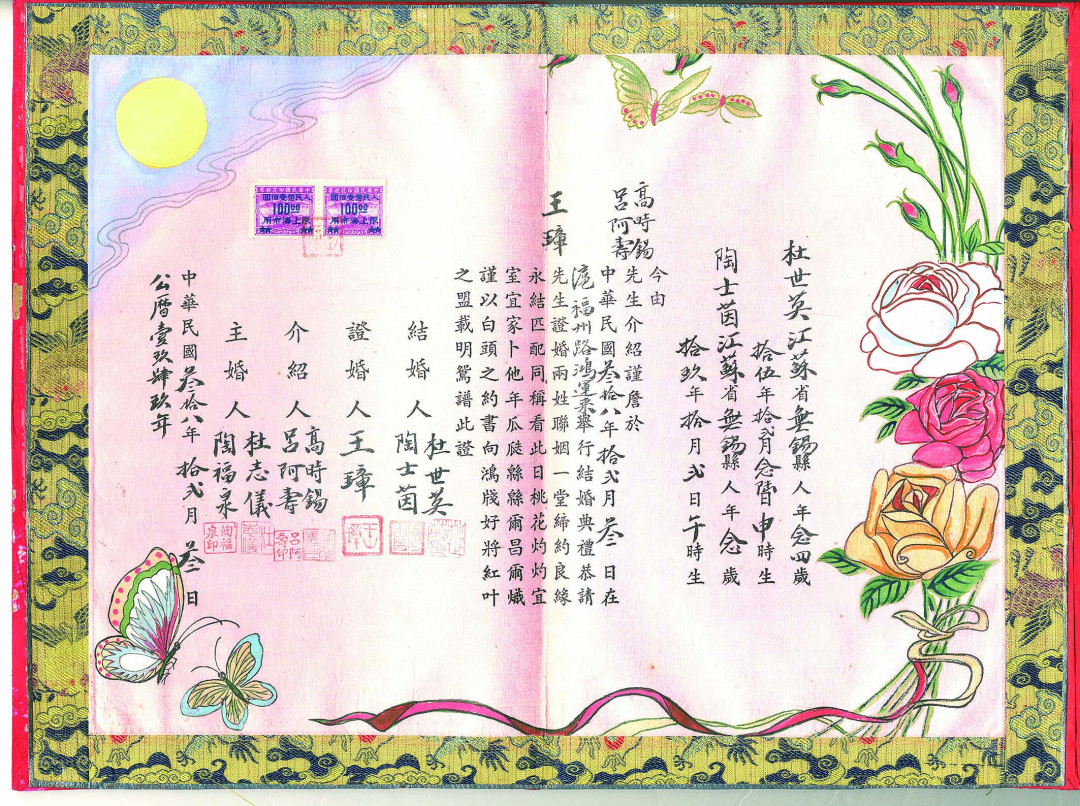 杜世英江蘇省無錫縣人年念四歲
拾伍年拾弍月念 申時生
陶士茵江蘇省無錫縣人年念歲
拾玖年拾月弍日午時生
今由
高時錫
呂阿壽
先生介紹謹詹於
中華民國叁拾八年拾弍月叁日在
滬福州路鴻運樓舉行結婚典禮恭請
王璋先生證婚兩姓聯姻一堂締約良緣
永結匹配同稱看此日桃花灼灼宜
室宜家卜他年瓜瓞緜緜爾昌爾熾
謹以白頭之約書向鴻牋好將紅叶
之盟載明鴛譜此證
結婚人
杜世英
陶士茵
證婚人王璋
介紹人
高時錫
呂阿壽
主婚人
杜志儀
陶福泉
中華民國叁拾八年拾弍月叁日
公曆壹玖肆玖年
中華民國印花稅票
人民幣壹佰圓
100.00
限上海市用
中華民國印花稅票
人民幣壹佰圓
100.00
限上海市用
陶福泉印
呂阿壽印